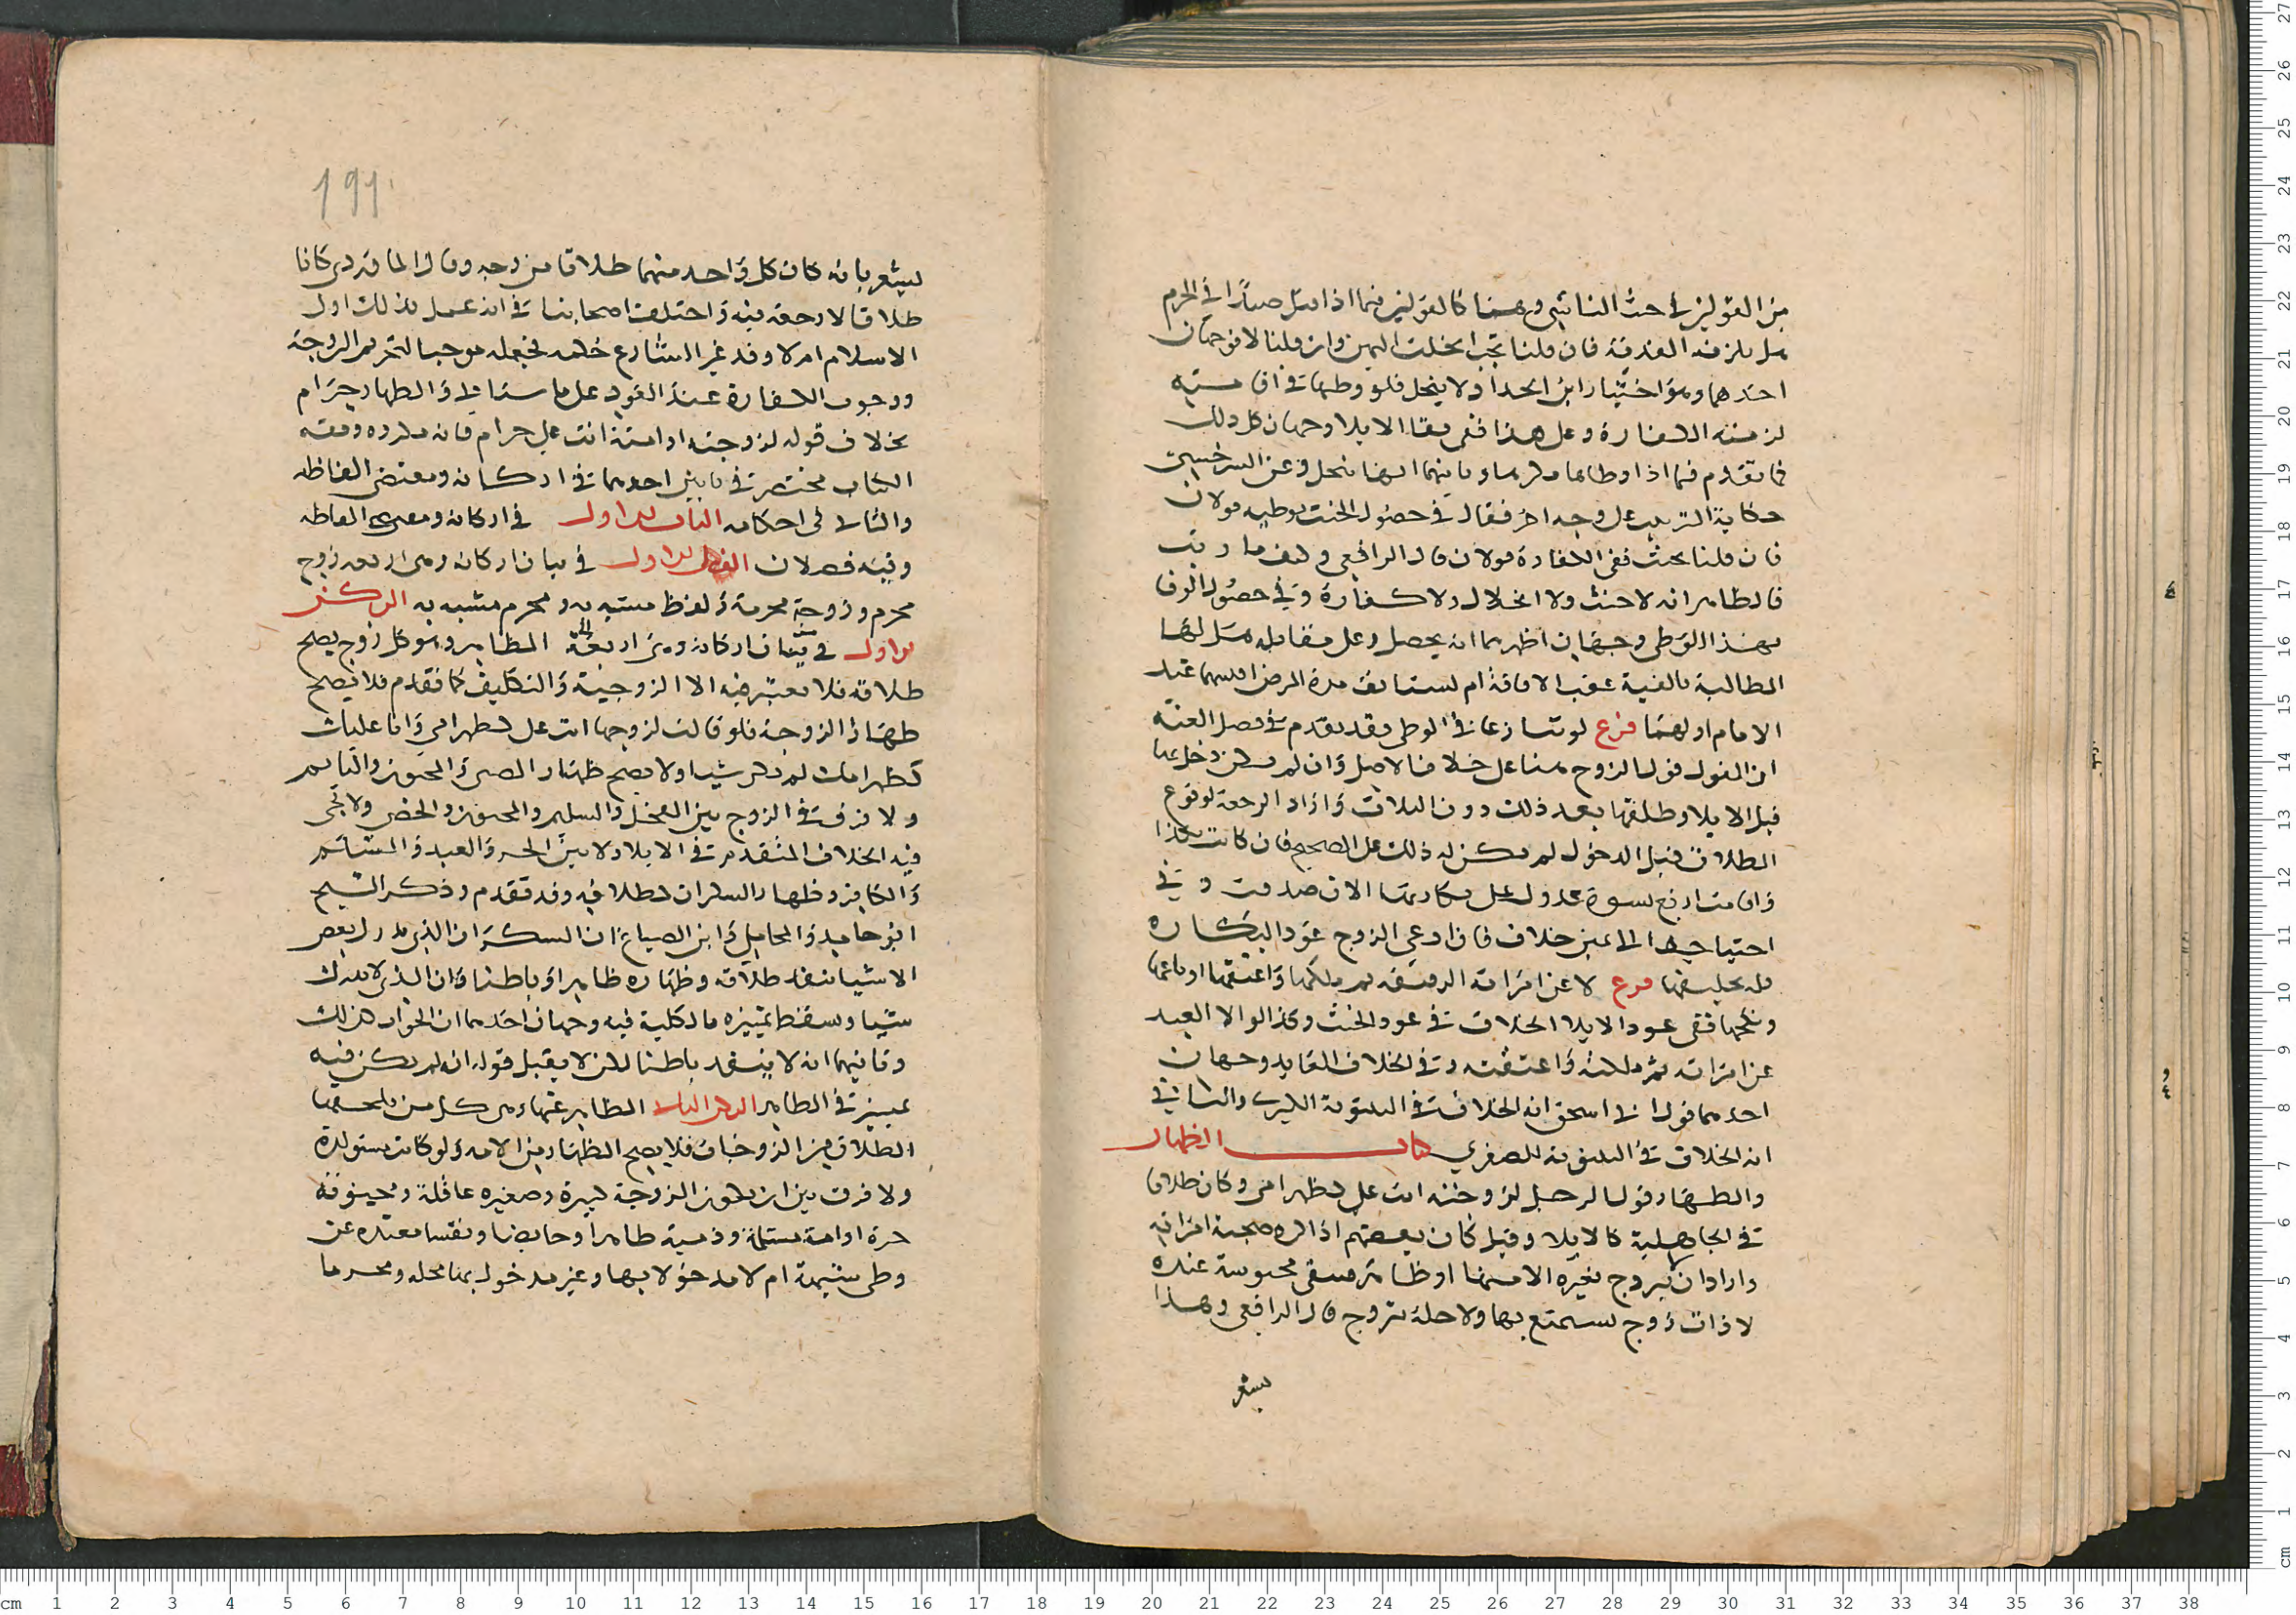 من القولين في حنث الناسي وهما كالقولين فيما اذا قتل صيدا في الحرم
هل يلزمه الفدية فان قلنا يجب انحلت اليمين وان قلنا لا فوجهان
احدهما وهو اختيار ابن الحداد ولا ينحل فلو وطيها في افاقته
لزمته الكفارة وعلى هذا ففي بقا الايلا وجهان كل ذلك
كما تقدم فيما اذا وطيها مكرها وثانيهما انها تنحل وعن السرخسي
حكاية الترتيب على وجه اخر فقال في حصول الحنث بوطيه قولان
فان قلنا يحنث ففي الكفارة قولان قال الرافعي وكيف ما رتب
فالظاهر انه لا حنث ولا انحلال ولا كفارة وفي حصول الوفا
بهذا الوطي وجهان اظهرهما انه يحصل وعلى مقابله هل لها
المطالبة بالفية عقب الافاقة ام تستانف مدة المرض اقيسهما عند
الامام اولهما فرع لو تنازعا في الوطي فقد تقدم في فصل العنة
ان القول قول الزوج هنا على خلاف الاصل وان لم يكن دخل بها
قبل الايلا وطلقها بعد ذلك دون الثلاث واراد الرجعة لوقوع
الطلاق قبل الدخول لم يكن له ذلك على الصحيح فان كانت بكرا
واقامت اربع نسوة عدول على بكارتها الان صدقت و في
احتياجها الى يمين خلاف فان ادعى الزوج عود البكارة
فله تحليفها فرع لا عن امراته الرقيقة ثم ملكها واعتقها او باعها
ونكحها ففي عود الايلا الخلاف في عود الحنث وكذا لو الا العبد
عن امراته ثم ملكته واعتقته وفي الخلاف العايد وجهان
احدهما قول ابي اسحق انه الخلاف في البينونة الكبرى والثاني
انه الخلاف في البينونة الصغرى كتاب الظهار
والظهار قول الرجل لزوجته انت علي كظهر امي وكان طلاقا
في الجاهلية كالايلا وقيل كان بعضهم اذا كره صحبة امراته
واراد ان لا تتزوج بغيره الا منها او ظاهر فتبقى محبوسة عنده
لا ذات زوج تستمتع بها ولا خلية تتزوج قال الرافعي وهذا
يشعر
١٩١
يشعر بانه كان كل واحد منهما طلاقا من وجه وقال الماوردي كانا
طلاقا لا رجعة فيه واختلف اصحابنا في انه عمل بذلك اول
الاسلام ام لا وقد غير الشارع حكمه فجعله موجبا لتحريم الزوجة
ووجوب الكفارة عند العود على ما سياتي والظهار حرام
بخلاف قوله لزوجته او امته انت علي حرام فانه مكروه ومقصود
الكتاب منحصر في بابين احدهما في اركانه ومقتضى الفاظه
والثاني في احكامه الباب الاول في اركانه ومقتضى الفاظه
وفيه فصلان الفصل الاول في بيان اركانه وهي اربعة زوج
محرم وزوجة محرمة ولفظ مشبه به ومحرم مشبه به الركن
الاول في بيان اركانه وهي اربعة المظاهر وهو كل زوج يصح
طلاقه فلا يعتبر فيه الا الزوجية والتكليف كما تقدم فلا يصح
ظهار الزوجة فلو قالت لزوجها انت علي كظهر امي وانا عليك
كظهر امك لم يكن شيا ولا يصح ظهار الصبي والمجنون والنايم
ولا فرق في الزوج بين الفحل والسليم والمجنون والخصي ولا يجي
فيه الخلاف المتقدم في الايلا ولا بين الحر والعبد والمسلم
والكافر وظهار السكران كطلاقه وقد تقدم وذكر الشيخ
ابو حامد والمحاملي وابن الصباغ ان السكران الذي يدرك بعض
الاشيا ينفذ طلاقه وظهاره ظاهرا وباطنا وان الذي لا يدرك
شيا وسقط تمييزه بالكلية فيه وجهان احدهما ان الجواب كذلك
وثانيهما انه لا ينفذ باطنا لكن لا يقبل قوله انه لم يكن فيه
تمييز في الظاهر الركن الثاني المظاهر عنها وهي كل من يلحقها
الطلاق من الزوجات فلا يصح الظهار من الامة ولو كانت مستولدة
ولا فرق بين ان تكون الزوجة كبيرة وصغيرة عاقلة ومجنونة
حرة او امة مسلمة وذمية طاهرا وحايضا ونفسا معتدة عن
وطي شبهة ام لا مدخولا بها وغير مدخول بها محلة ومحرمة